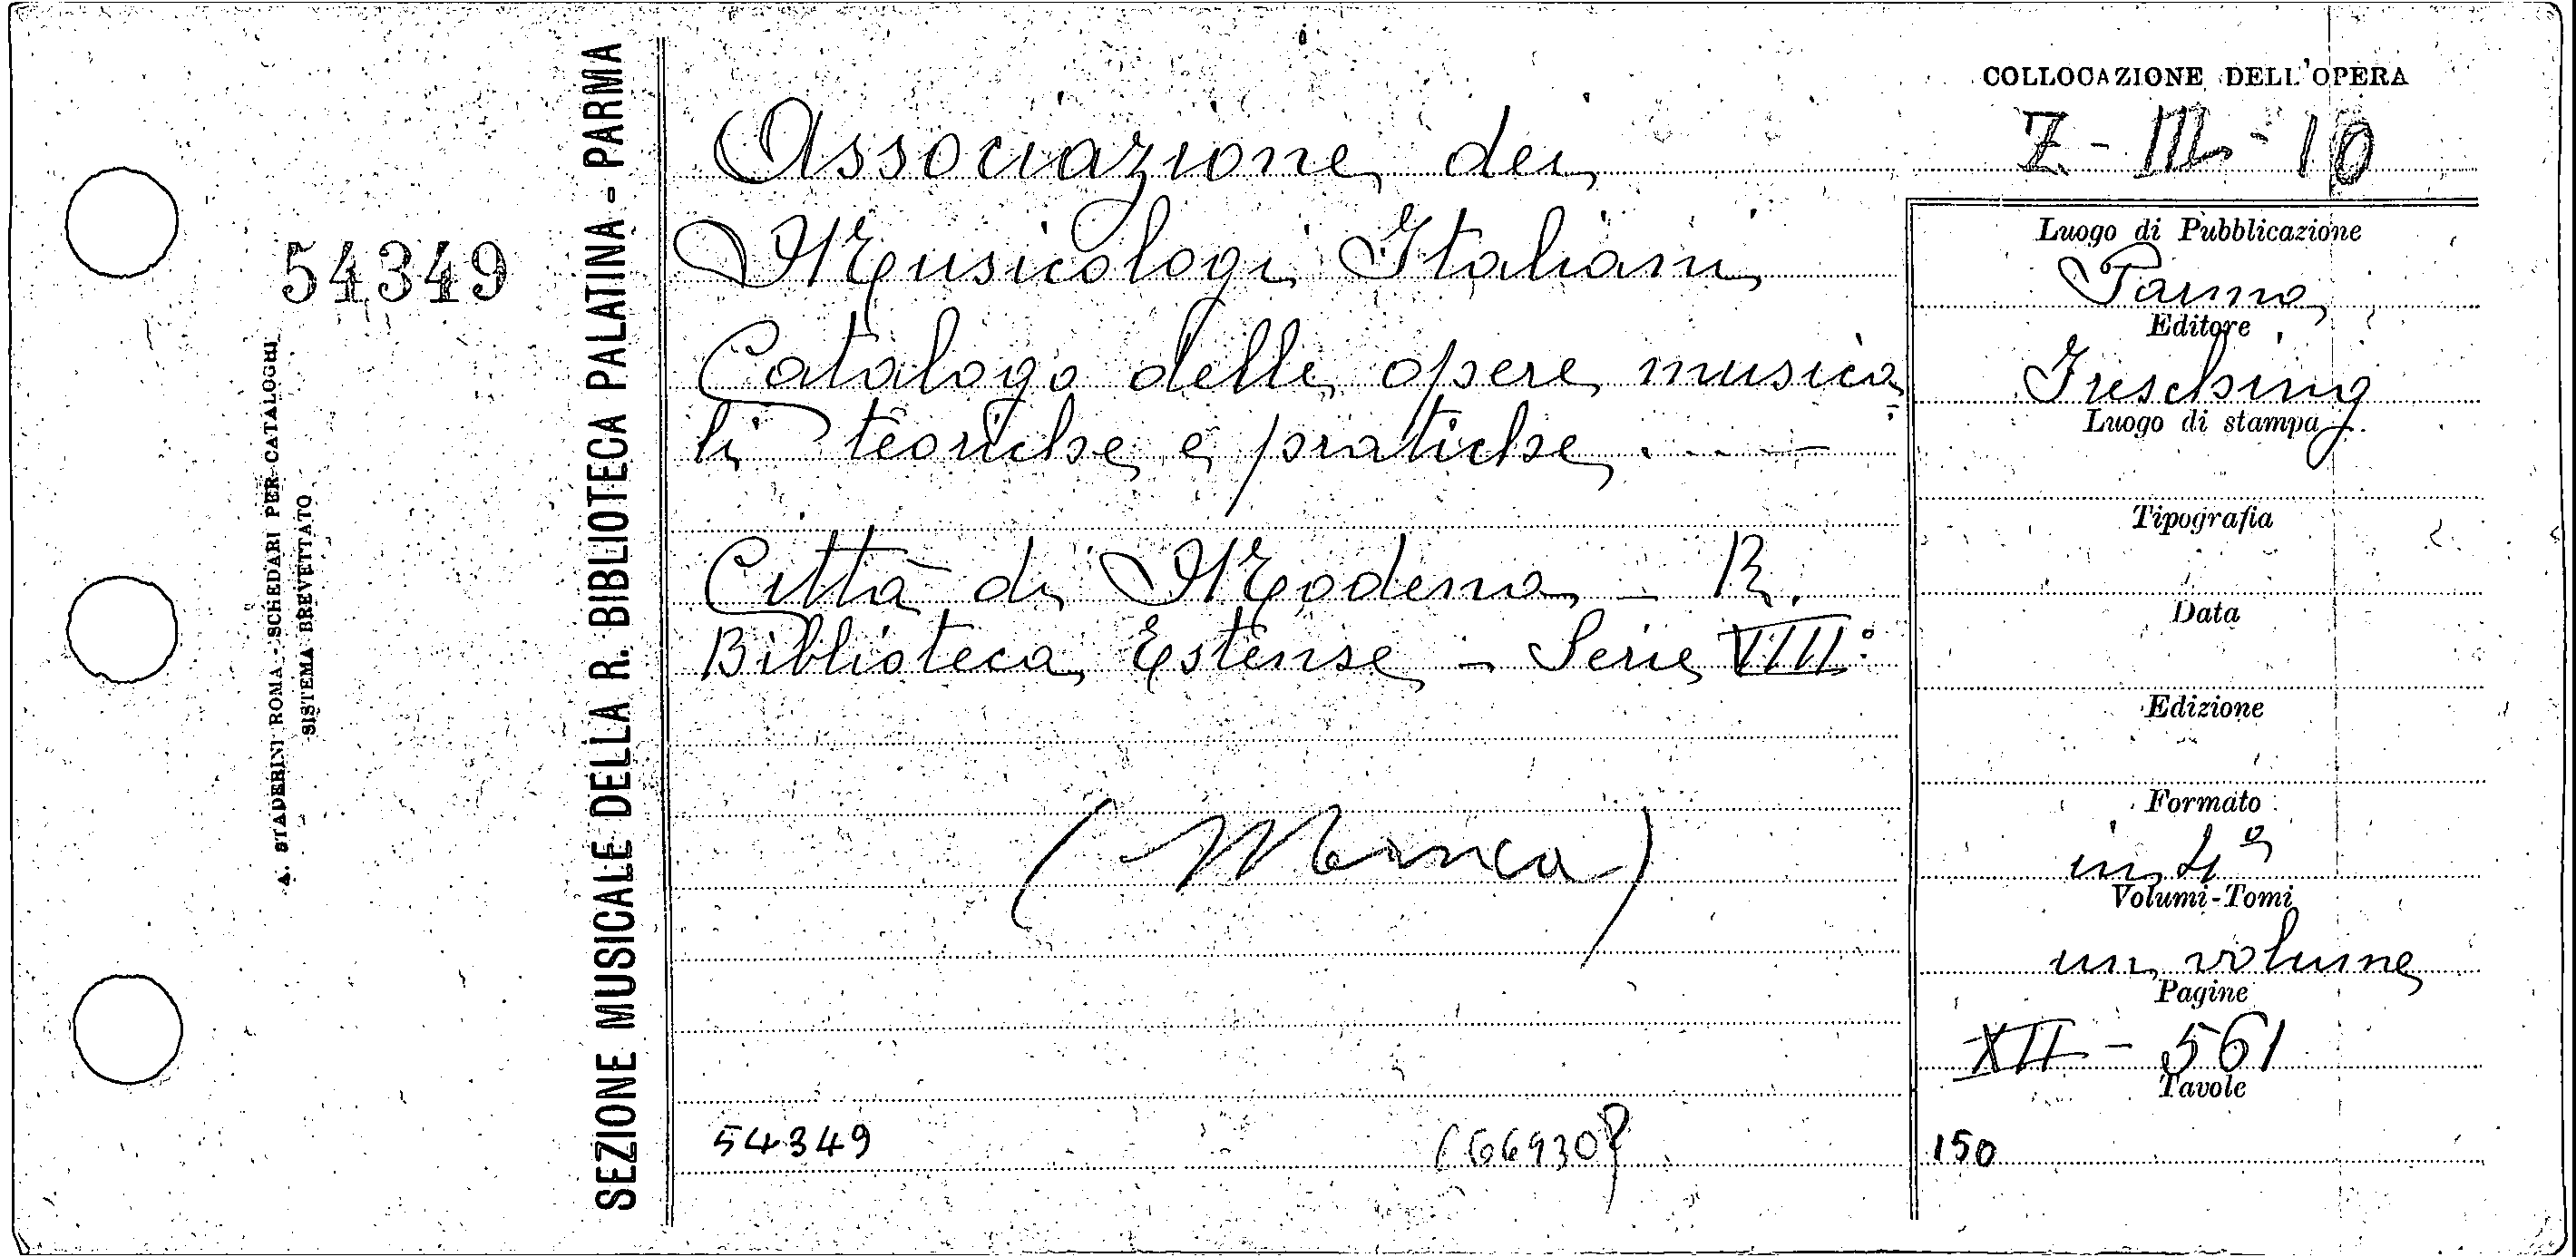 54349
A. STADERINI ROMA - SCHEDARI PER CATALOGHI
SISTEMA BREVETTATO
SEZIONE MUSICALE DELLA R. BIBLIOTECA PALATINA - PARMA
Associazione dei
Musicologi Italiani
Catalogo delle opere musica
li teoriche e pratiche . . . . —
Città di Modena - R.
Biblioteca Estense - Serie VIII:
(Manca)
54349
COLLOCAZIONE DELL'OPERA
Z - III - 10
Luogo di Pubblicazione
Parma
Editore
Fresching
Luogo di stampa
Tipografia
Data
Edizione
Formato
in 4°
Volumi-Tomi
un volume
Pagine
XII - 561
Tavole
150